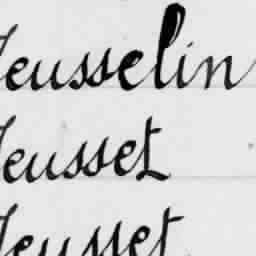 Jeusselin
Jeusset
Jeusset